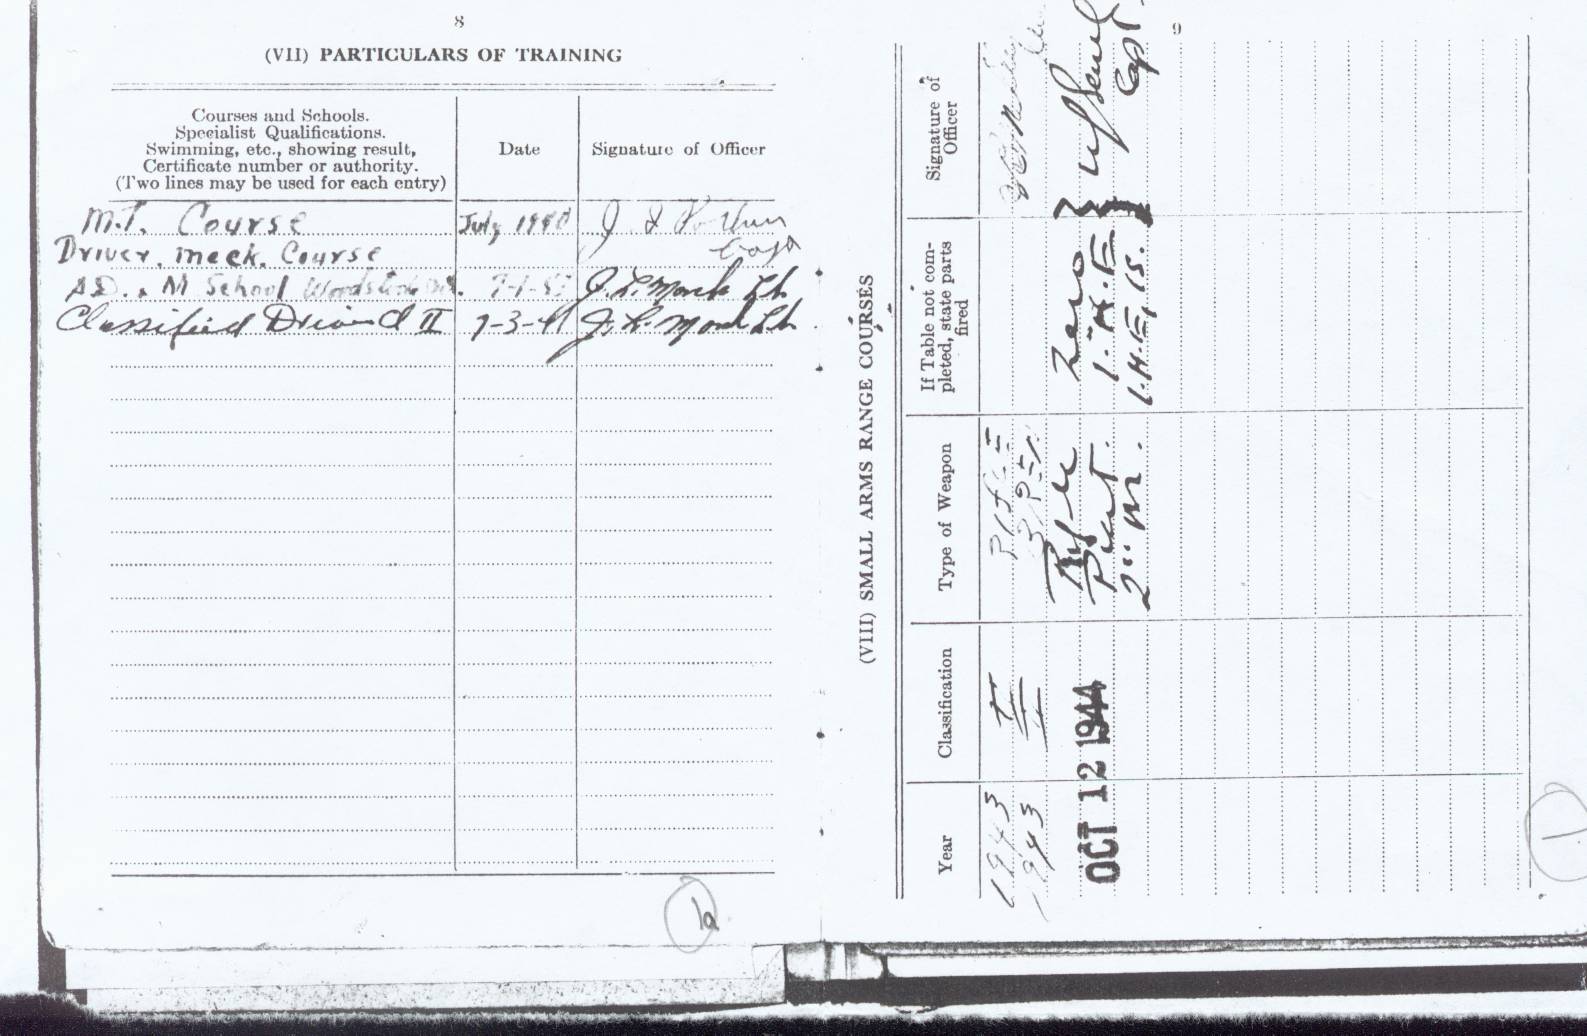 8
(VII) PARTICULARS OF TRAINING
Courses and Schools.
Specialist Qualifications.
Swimming, etc., showing result,
Certificate number or authority.
(Two lines may be used for each entry)
Date
Signature of Officer
M.T. Course July 1940
Driver, Mech. Course
A.D. & M School Woodstock
Classified Driver II 7-3-41
1a
9
(VIII) SMALL ARMS RANGE COURSES
Year
Classification
Type of Weapon
If Table not com-
pleted, state parts
fired
Signature of
Officer
1943 II Rifle
1943 II Bren
Rifle Zero
OCT 12 1944 Piat. I.H.E.
2" M. I.H.E, IS. Capt.
1